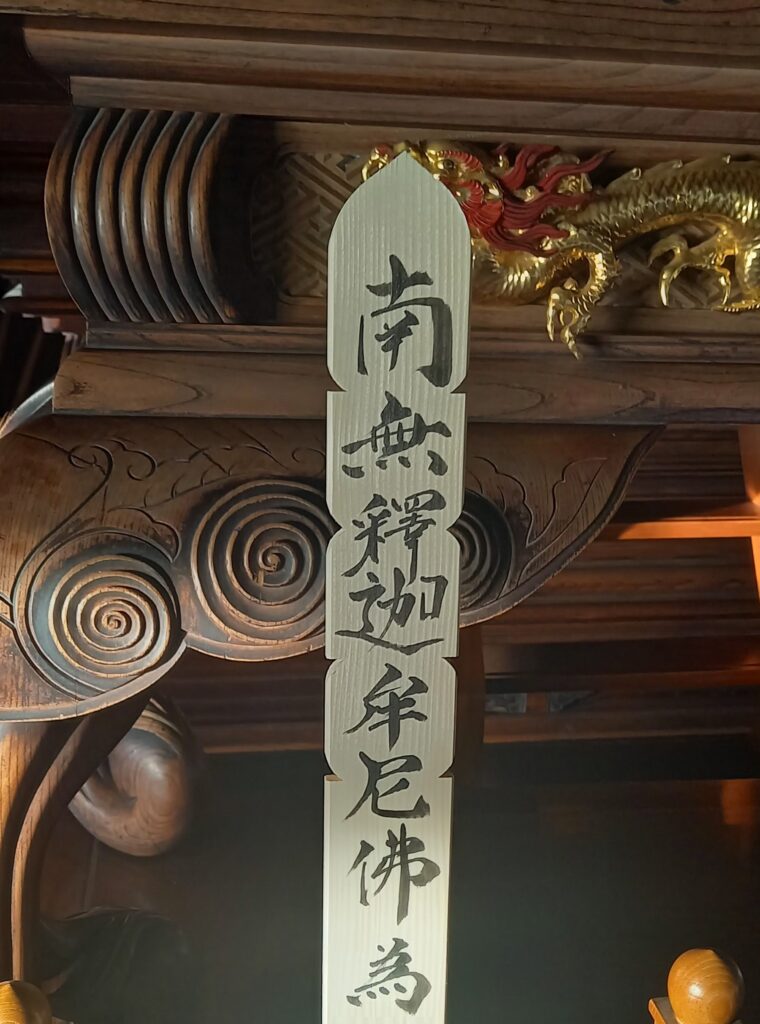 南無釋迦牟尼佛為